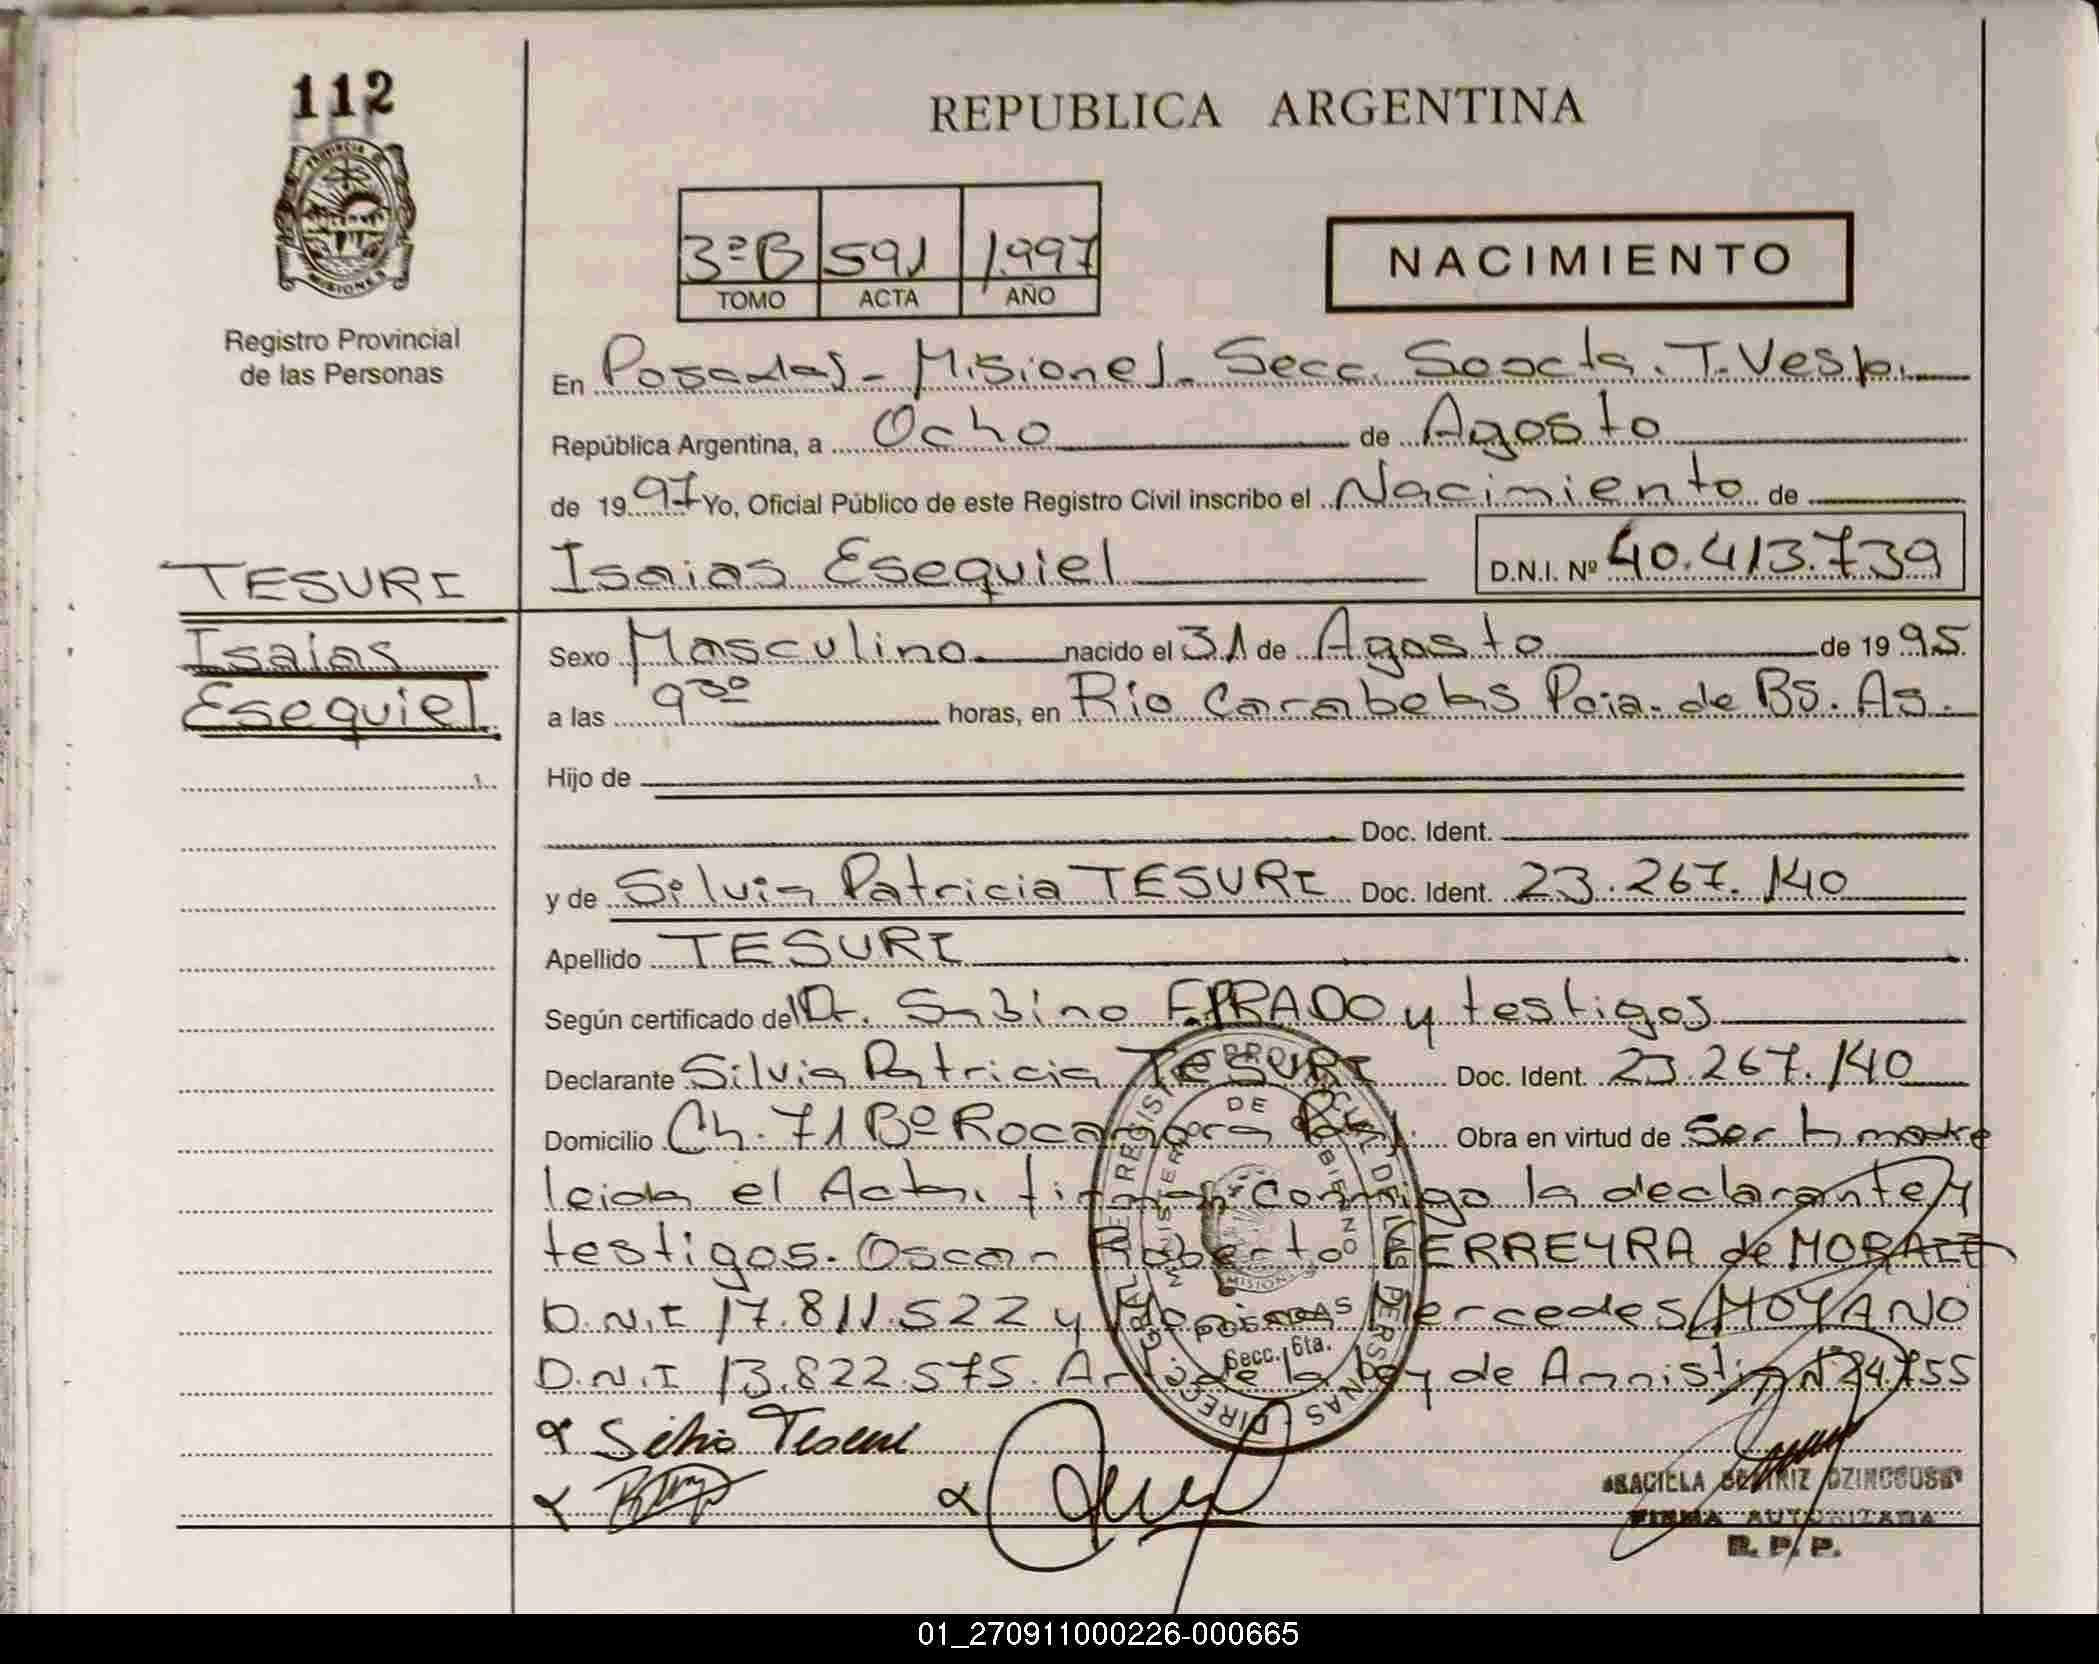 112
REPUBLICA ARGENTINA
PROVINCIA DE
MISIONES
Registro Provincial
de las Personas
3ºB 591 1.997
TOMO ACTA AÑO
NACIMIENTO
En Posadas - Misiones. Secc. Sexta. T. Vesp.
República Argentina, a Ocho de Agosto
de 1997 Yo, Oficial Público de este Registro Civil inscribo el Nacimiento de
Isaias Esequiel D.N.I. Nº 40.413.739
TESURI
Isaias
Esequiel
Sexo Masculino nacido el 31 de Agosto de 1995.
a las 9 30 horas, en Rio Carabelas Pcia. de Bs. As.
Hijo de
Doc. Ident.
y de Silvia Patricia TESURI Doc. Ident. 23.267.140
Apellido TESURI
Según certificado del Dr. Sabino F. PRADO y testigos
Declarante Silvia Patricia TESURI Doc. Ident. 23.267.140
Domicilio Ch. 71 Bº Rocamora Obra en virtud de Ser la madre
leida el Acta, firman conmigo la declarante y
testigos. Oscar Roberto FERREYRA de MORAES
D.N.I 17.811.522 y Mercedes MOYANO
D.N.I 13.822.575. de la Ley de Amnistia Nº 24.755
Silvia Tesuri
POSADAS
Secc. 6ta.
BEATRIZ
FIRMA AUTORIZADA
R. P. P.
01_270911000226-000665